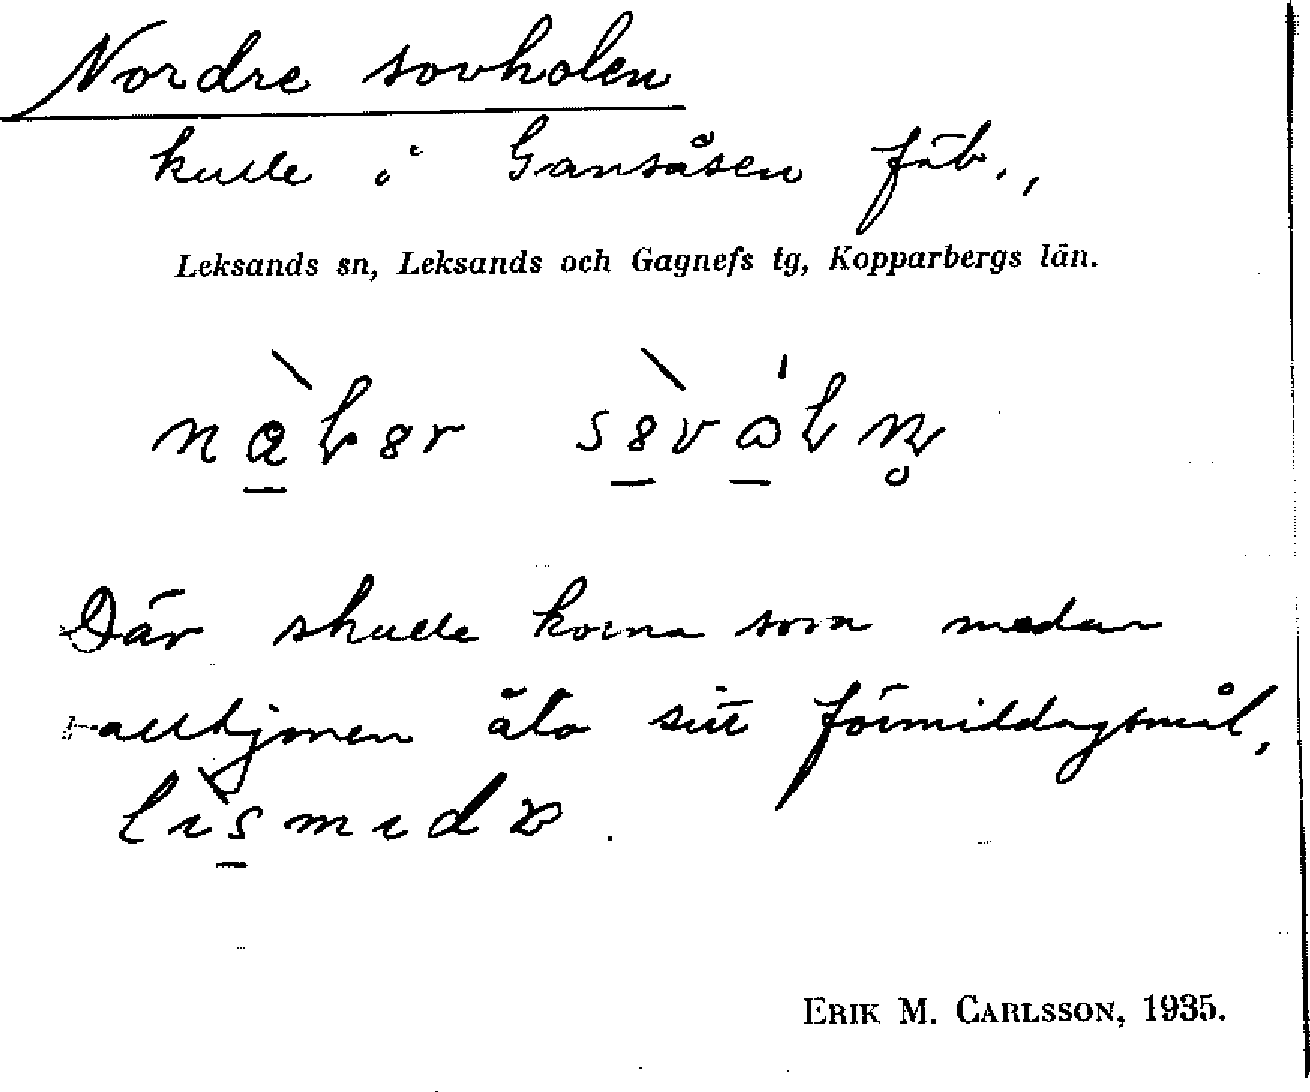 Nordre sovholen
kulle i Gansåsen fäb.,
Leksands sn, Leksands och Gagnefs tg, Kopparbergs län.
Där skulle korna sova medan
vallhjonen äta sitt förmiddagsmål,
ERIK M. CARLSSON, 1935.